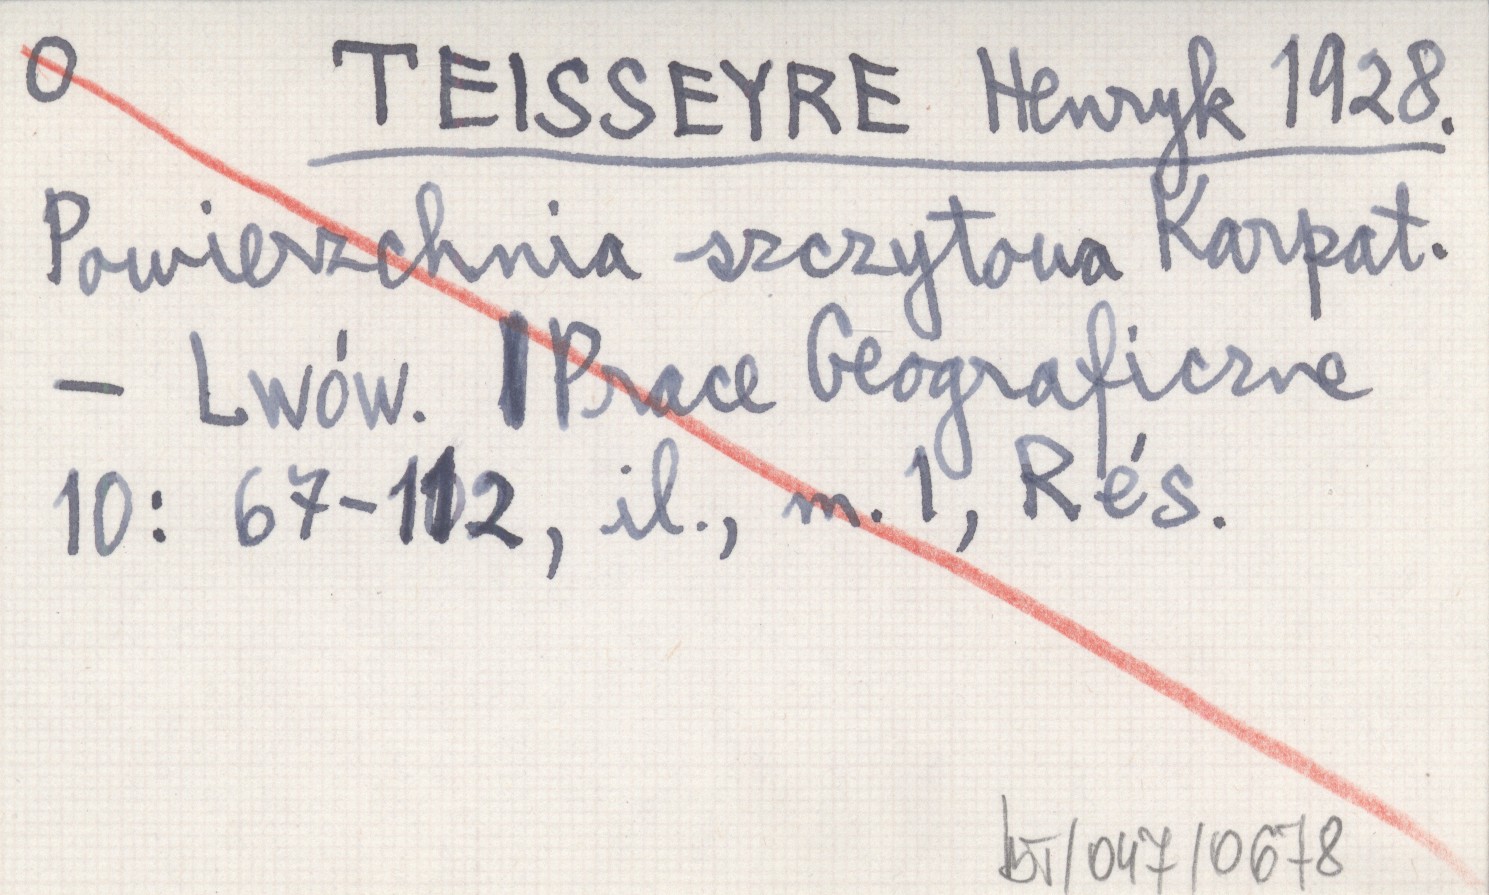 O TEISSEYRE Henryk 1928.
Powierzchnia szczytowa Karpat.
— Lwów. Prace Geograficzne
10: 67-112, il., m. 1, Rés.
BT/047/0678